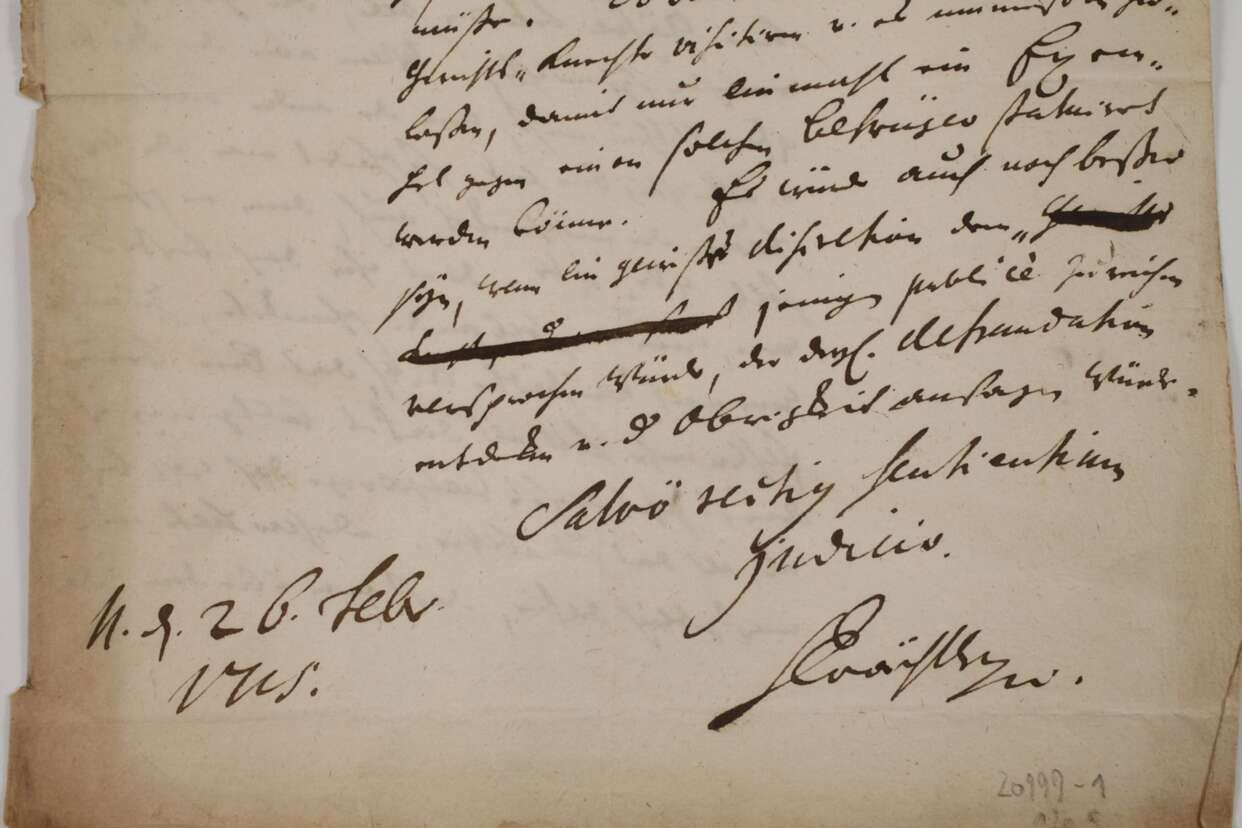 müste.
Gerichts-Knechte visitiren u. es
laßen, damit nur einmahl ein Exem-
pel gegen einen solchen betrüger statuiret
werden könne. Es würde auch noch beßer
seyn, wenn ein gewißes discretion dem-
jenigen publicè zu reichen
versprochen würde, der dergl. defraudation
entdeken u. d Obrigkeit ansagen würde.
Salvô rectiq sentientium
judicio.
N. d. 26. Febr.
1715.
20999-1